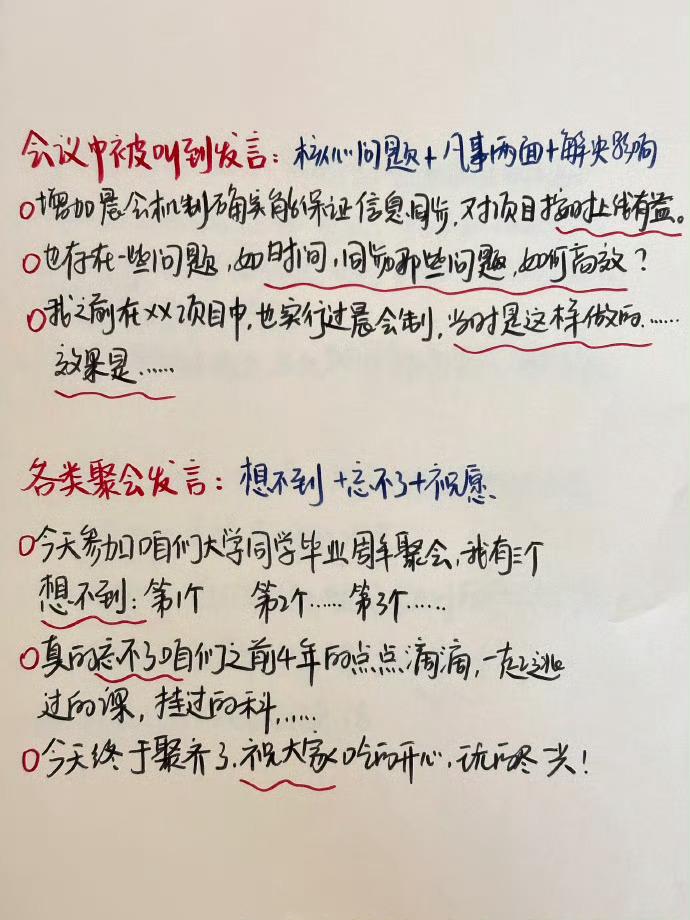 会议中被叫到发言：核心问题+凡事两面+解决影响
增加晨会机制确实能保证信息同步，对项目按时上线有益。
也存在一些问题，如时间，同步哪些问题，如何高效？
我之前在XX项目中，也实行过晨会制，当时是这样做的……
效果是……
各类聚会发言：想不到+忘不了+祝愿
今天参加咱们大学同学毕业周年聚会，我有三个
想不到：第1个 第2个…… 第3个……
真的忘不了咱们之前4年的点点滴滴，一起逃
过的课，挂过的科……
今天终于聚齐了，祝大家吃的开心，玩的尽兴！